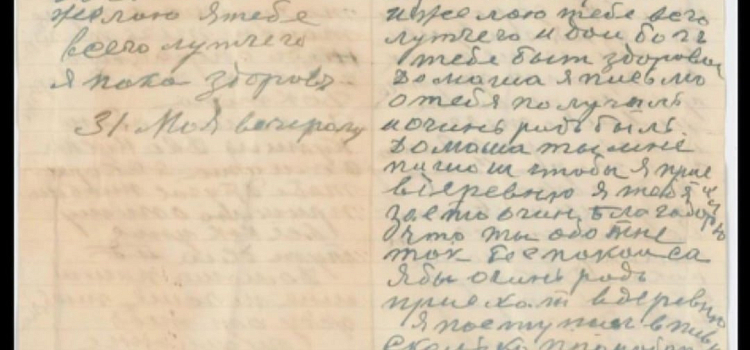 желою я тебе
всего лутчего
я пока здоровъ
31. Моя вечеромъ
и желою тебе всего
лутчего и дои богъ
тебе быт здоровои
Домаша я писмо
отебя получилъ
и очинь радъ былъ.
Домаша ты мне
пишош чтобы я прие
вдеревню я тебя
за ето очин благодорю
что ты обо мне
так беспокоиса
я бы очинь радъ
приехат вдеревню
я поступил